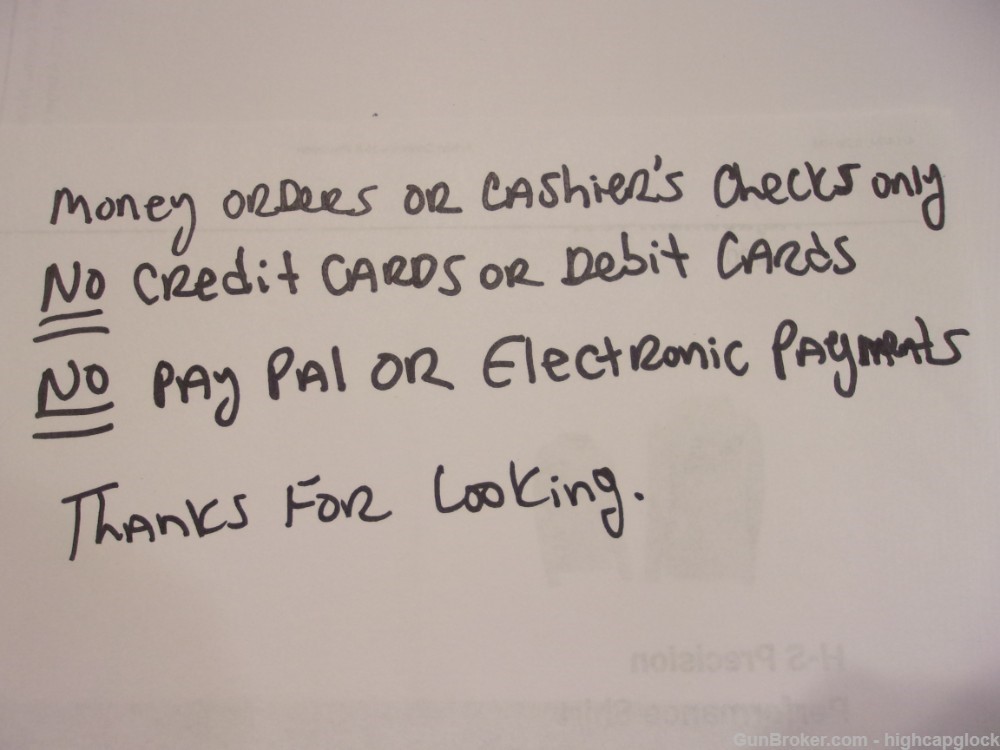 Money ORDERS OR CAShier's Checks only
NO Credit CARDS OR Debit CARds
NO PAy PAl OR Electronic PAyments
THANKS FOR Looking.
H-S Precision
GunBroker.com - highcapglock